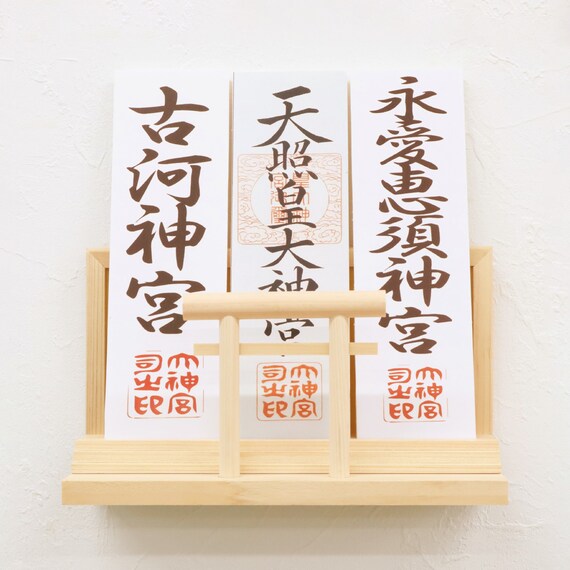 永愛恵須神宮
大神宮
司之印
天照皇大神宮
大神宮
司之印
古河神宮
大神宮
司之印